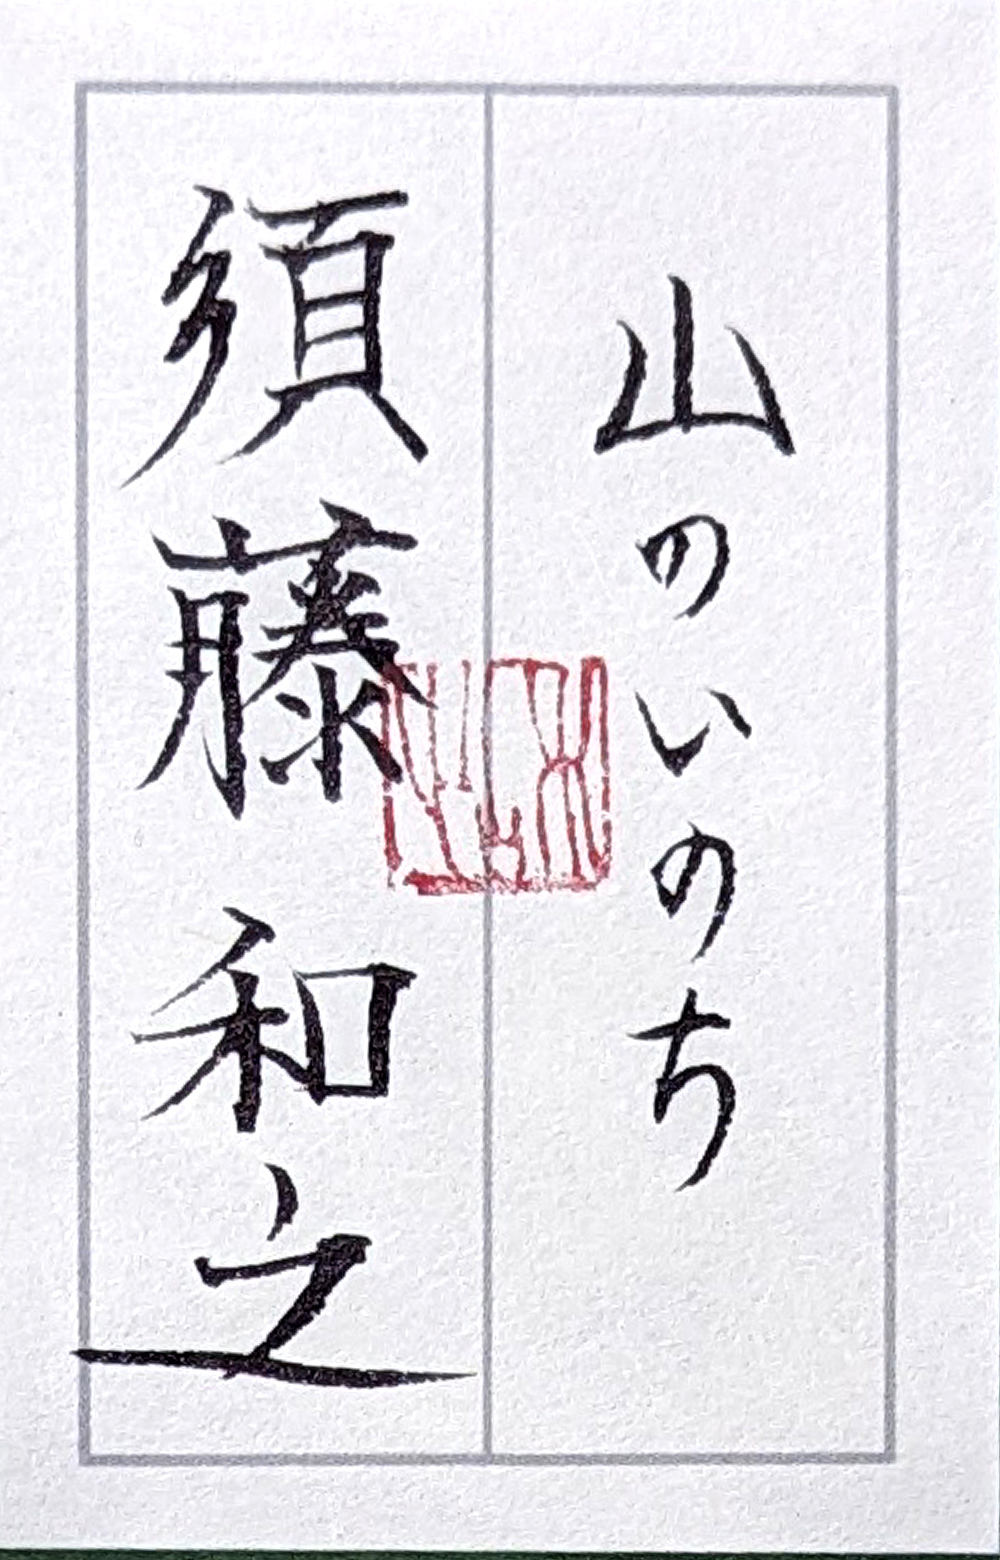 山のいのち
須藤和之